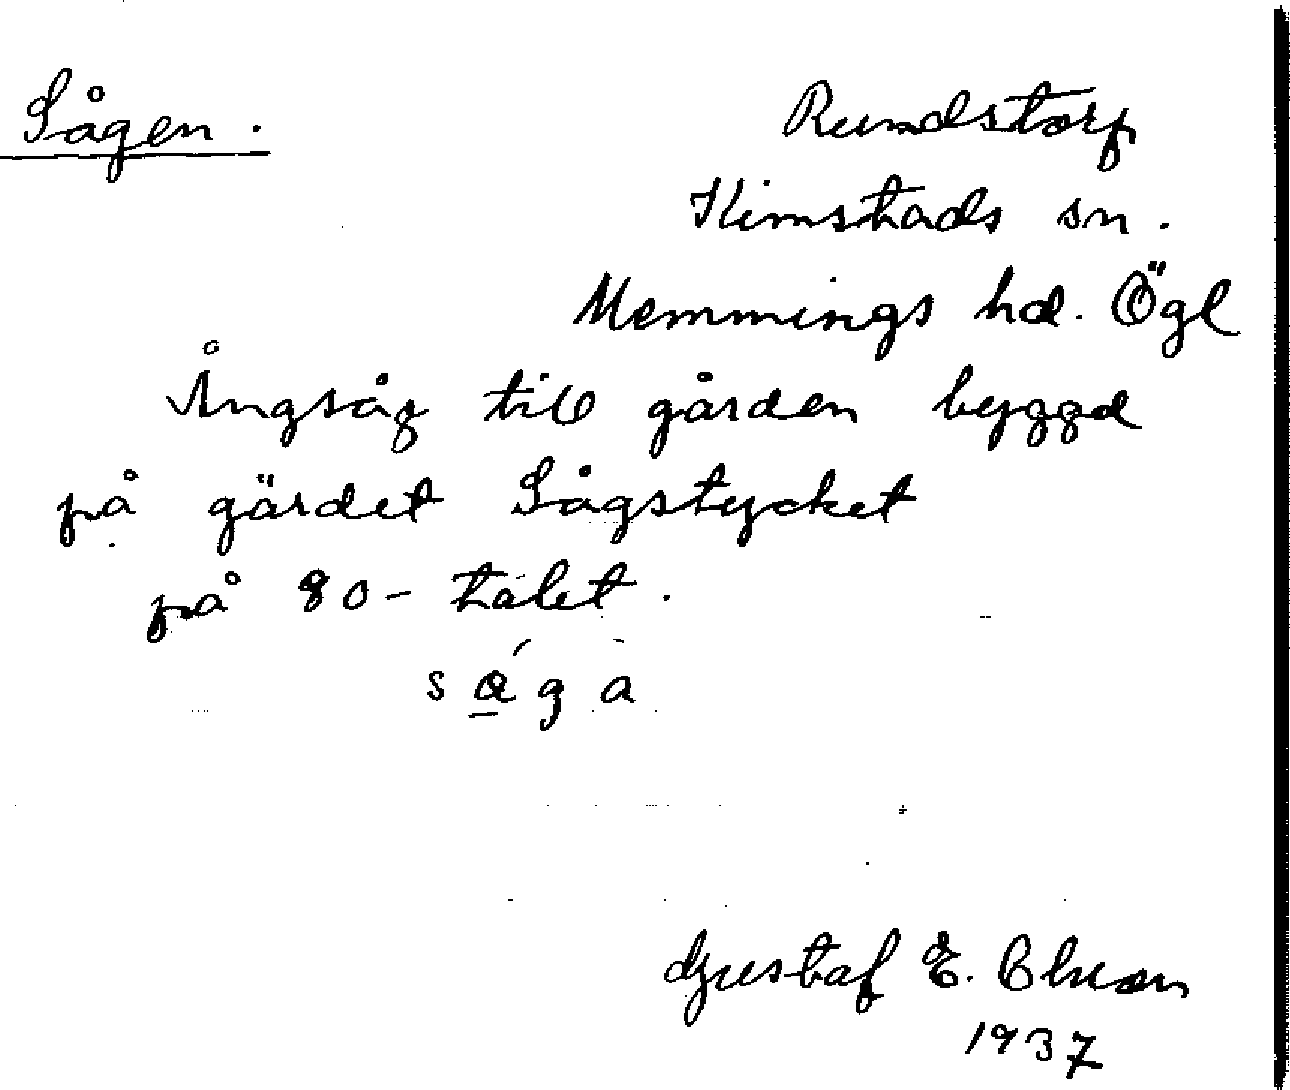 Sågen.
Rundstorp
Kimstads sn.
Memmings hd. Ögl
Ångsåg till gården byggd
på gärdet Sågstycket
på 80-talet.
Gustaf E.
1937